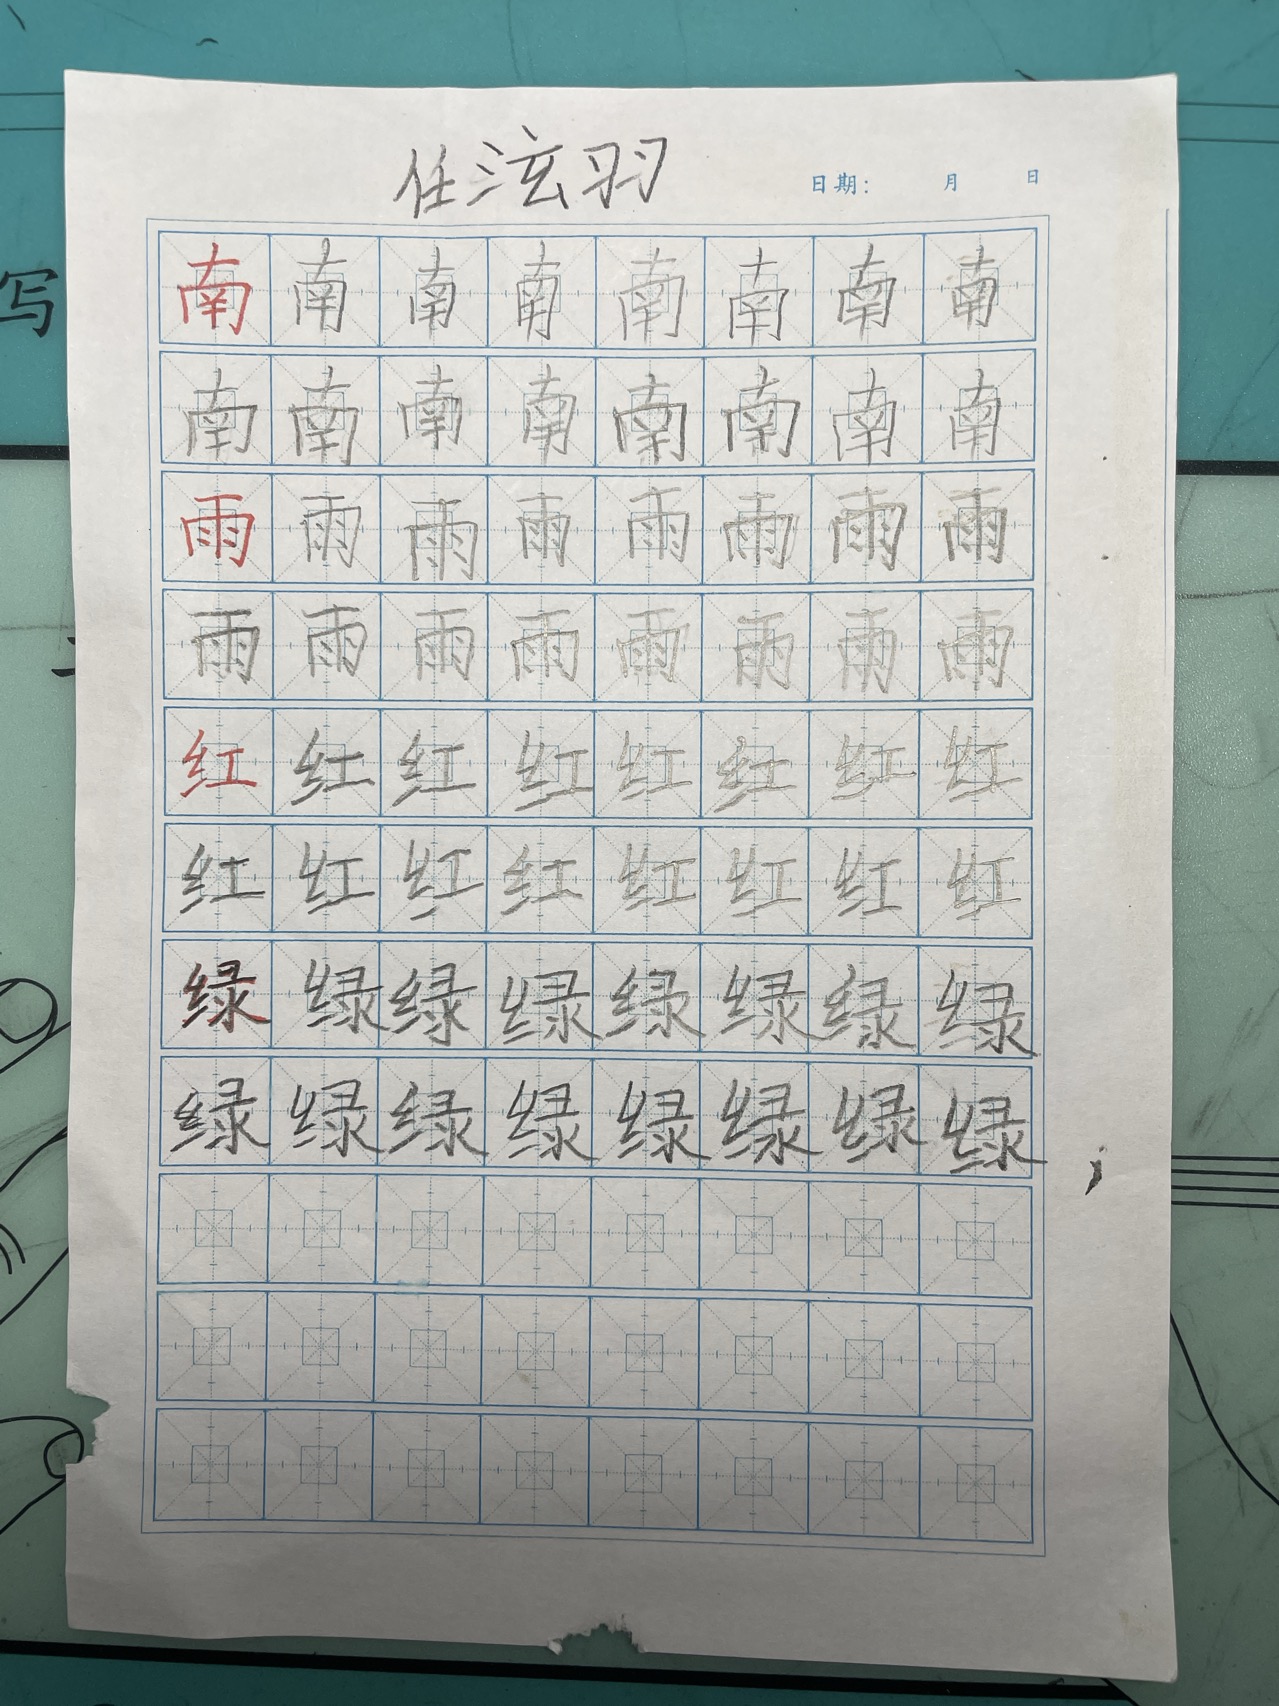 任泫羽
日期： 月 日
写
南南南南南南南南
南南南南南南南南
雨雨雨雨雨雨雨雨
雨雨雨雨雨雨雨雨
红红红红红红红红
红红红红红红红红
绿绿绿绿绿绿绿绿
绿绿绿绿绿绿绿绿